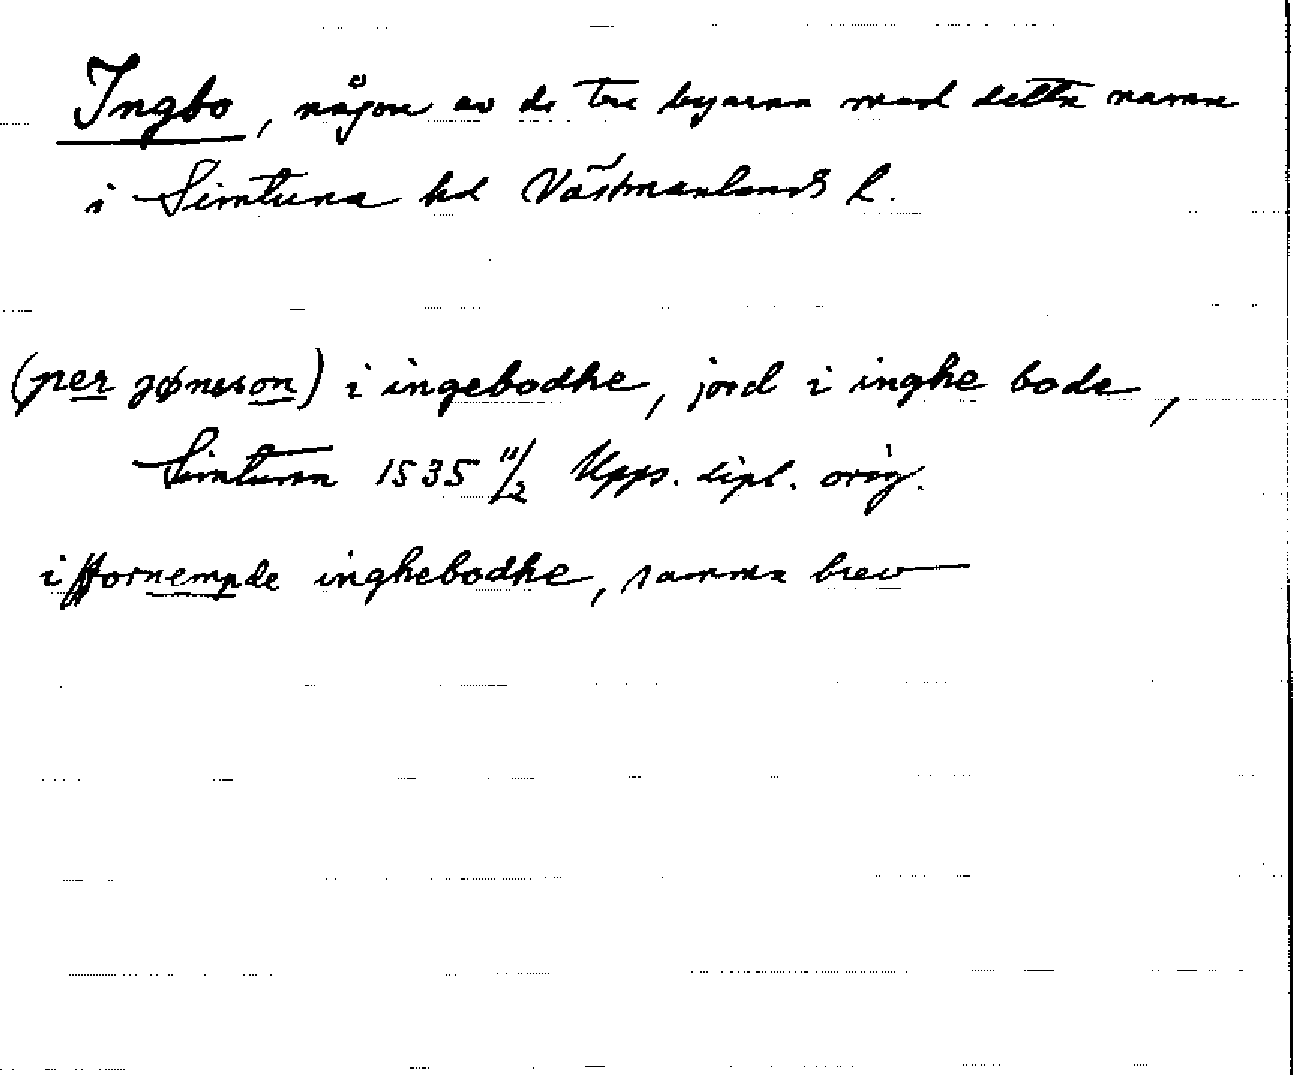 Ingbo, någon av de tre byarna med detta namn
i Simtuna hd Västmanlands l.
(per jønsson) i ingebodhe, jord i inghe bode,
Simtuna 1535 11/2 Upps. dipl. orig.
i ffornempde inghebodhe, samma brev